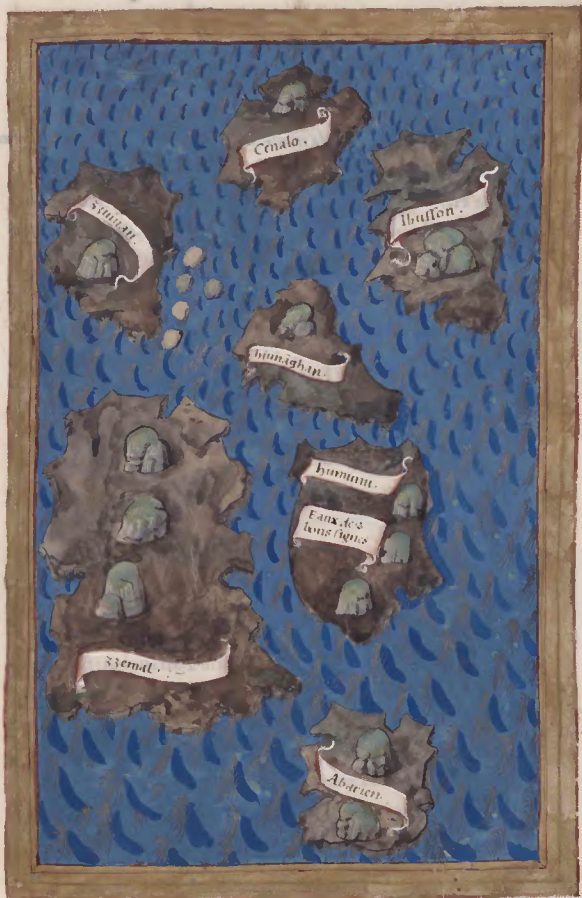 Cenalo.
Zuiuan.
Ibusson.
hiunaghan.
humunu.
Eaux des
bons signes
Zzemal.
Abarien.